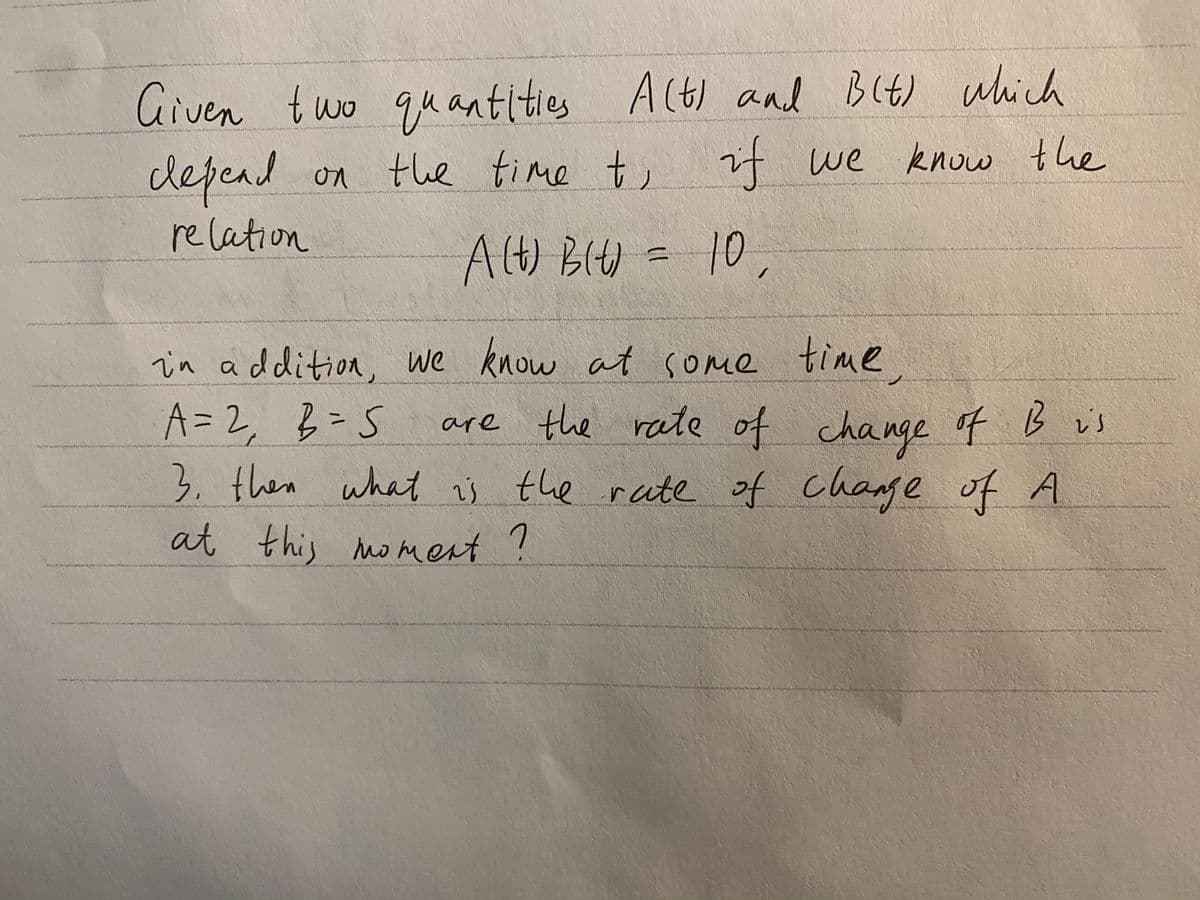 Given two quantities A(t) and B(t) which
depend on the time t, if we know the
relation
A(t) B(t) = 10,
in addition, we know at some time,
A=2, B=5 are the rate of change of B is
3. then what is the rate of change of A
at this moment ?